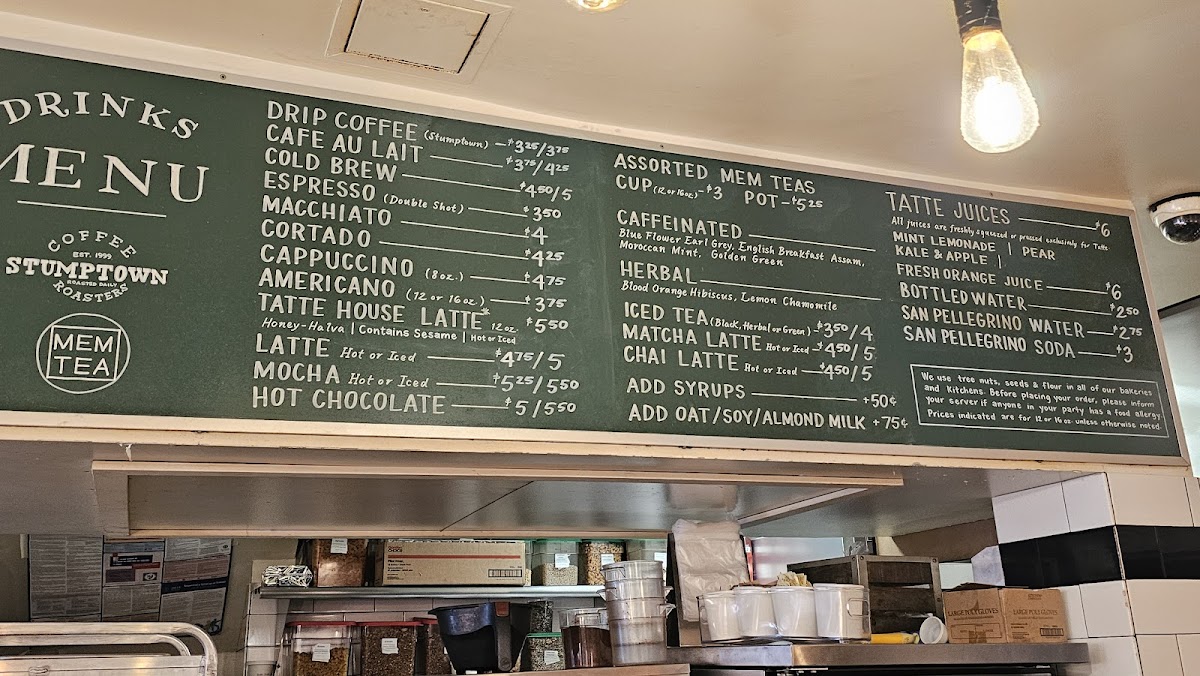 DRINKS
MENU
COFFEE
EST. 1999
STUMPTOWN
ROASTED DAILY
ROASTERS
MEM
TEA
DRIP COFFEE (Stumptown) $3.25/3.75
CAFE AU LAIT $3.75/4.25
COLD BREW $4.50/5
ESPRESSO (Double Shot) $3.50
MACCHIATO $4
CORTADO $4.25
CAPPUCCINO (8 oz.) $4.75
AMERICANO (12 or 16 oz.) $3.75
TATTE HOUSE LATTE* 12 oz. $5.50
Honey-Halva | Contains Sesame | Hot or Iced
LATTE Hot or Iced $4.75/5
MOCHA Hot or Iced $5.25/5.50
HOT CHOCOLATE $5/5.50
ASSORTED MEM TEAS
CUP (12 or 16oz) - $3 POT - $5.25
CAFFEINATED
Blue Flower Earl Grey, English Breakfast Assam,
Moroccan Mint, Golden Green
HERBAL
Blood Orange Hibiscus, Lemon Chamomile
ICED TEA (Black, Herbal or Green) - $3.50/4
MATCHA LATTE Hot or Iced - $4.50/5
CHAI LATTE Hot or Iced $4.50/5
ADD SYRUPS +50¢
ADD OAT/SOY/ALMOND MILK +75¢
TATTE JUICES $6
All juices are freshly squeezed or pressed exclusively for Tatte.
MINT LEMONADE | PEAR
KALE & APPLE |
FRESH ORANGE JUICE $6
BOTTLED WATER $2.50
SAN PELLEGRINO WATER $2.75
SAN PELLEGRINO SODA $3
We use tree nuts, seeds & flour in all of our bakeries
and kitchens. Before placing your order, please inform
your server if anyone in your party has a food allergy.
Prices indicated are for 12 or 16 oz. unless otherwise noted.
LARGE POLY GLOVES